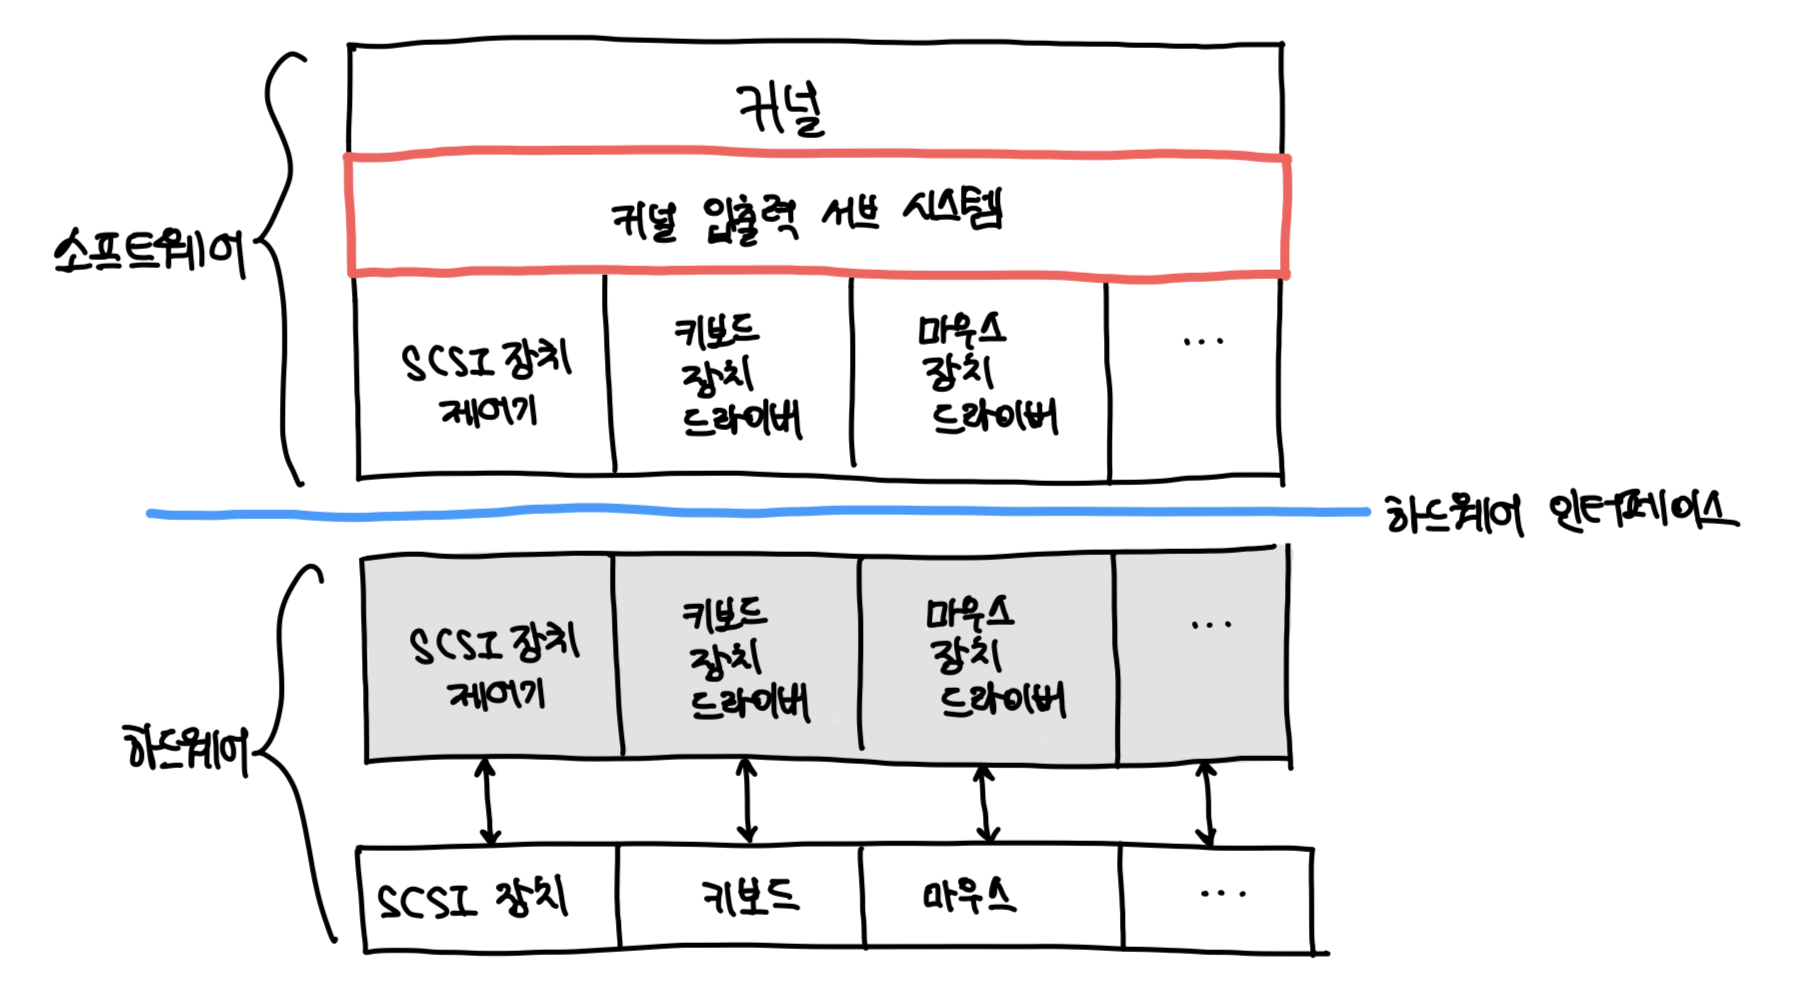 커널
커널 입출력 서브 시스템
소프트웨어
SCSI 장치
제어기
키보드
장치
드라이버
마우스
장치
드라이버
...
하드웨어 인터페이스
하드웨어
SCSI 장치
제어기
키보드
장치
드라이버
마우스
장치
드라이버
...
SCSI 장치
키보드
마우스
...